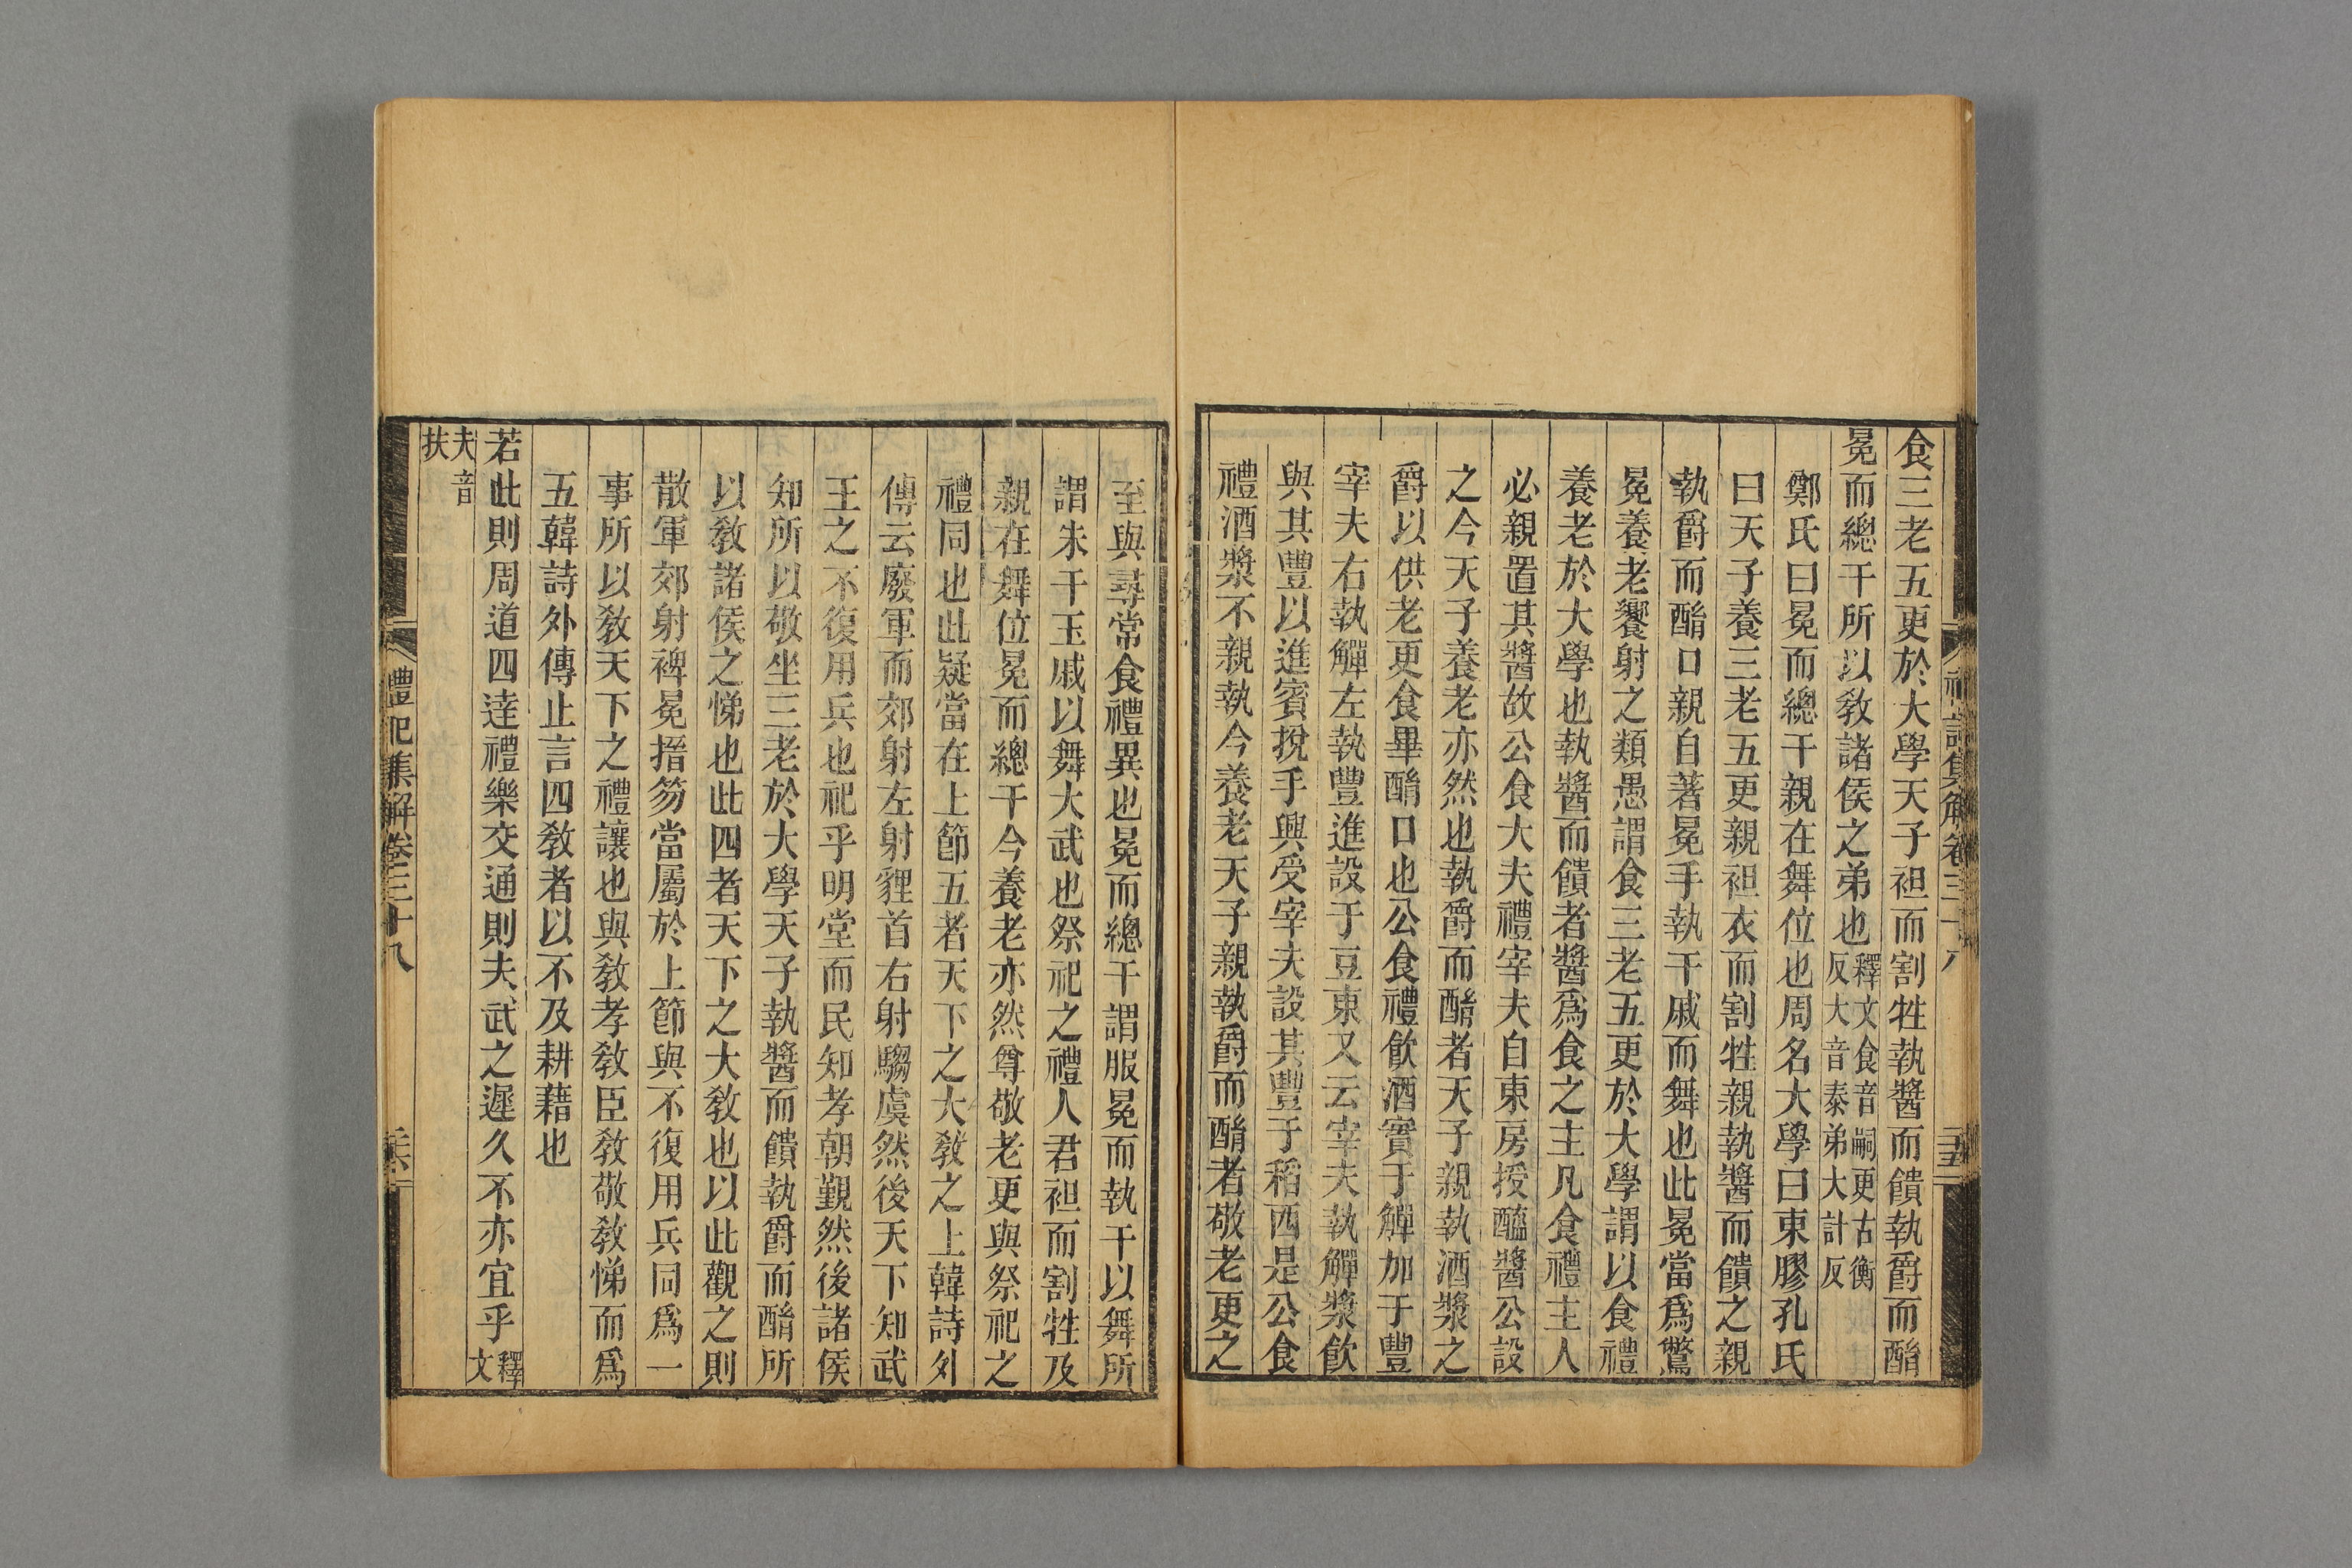 食三老五更於大學天子袒而割牲執醬而饋執爵而酳
冕而總干所以敎諸侯之弟也釋文食音嗣更古衡反大音泰弟大計反
鄭氏曰冕而總干親在舞位也周名大學曰東膠孔氏
曰天子養三老五更親袒衣而割牲親執醬而饋之親
執爵而酳口親自著冕手執干戚而舞也此冕當爲鷩
冕養老饗射之類愚謂食三老五更於大學謂以食禮
養老於大學也執醬而饋者醬爲食之主凡食禮主人
必親置其醬故公食大夫禮宰夫自東房授醯醬公設
之今天子養老亦然也執爵而酳者天子親執酒漿之
爵以供老更食畢酳口也公食禮飮酒實于觶加于豐
宰夫右執觶左執豐進設于豆東又云宰夫執觶漿飮
與其豐以進賓挩手興受宰夫設其豐于稻西是公食
禮酒漿不親執今養老天子親執爵而酳者敬老更之
至與尋常食禮異也冕而總干謂服冕而執干以舞所
謂朱干玉戚以舞大武也祭祀之禮人君袒而割牲及
親在舞位冕而總干今養老亦然尊敬老更與祭祀之
禮同也此疑當在上節五者天下之大敎之上韓詩外
傳云廢軍而郊射左射貍首右射騶虞然後天下知武
王之不復用兵也祀乎明堂而民知孝朝覲然後諸侯
知所以敬坐三老於大學天子執醬而饋執爵而酳所
以敎諸侯之悌也此四者天下之大敎也以此觀之則
散軍郊射裨冕搢笏當屬於上節與不復用兵同爲一
事所以敎天下之禮讓也與敎孝敎臣敎敬敎悌而爲
五韓詩外傳止言四敎者以不及耕藉也
若此則周道四達禮樂交通則夫武之遲久不亦宜乎釋文
夫音扶
禮記集解卷三十八